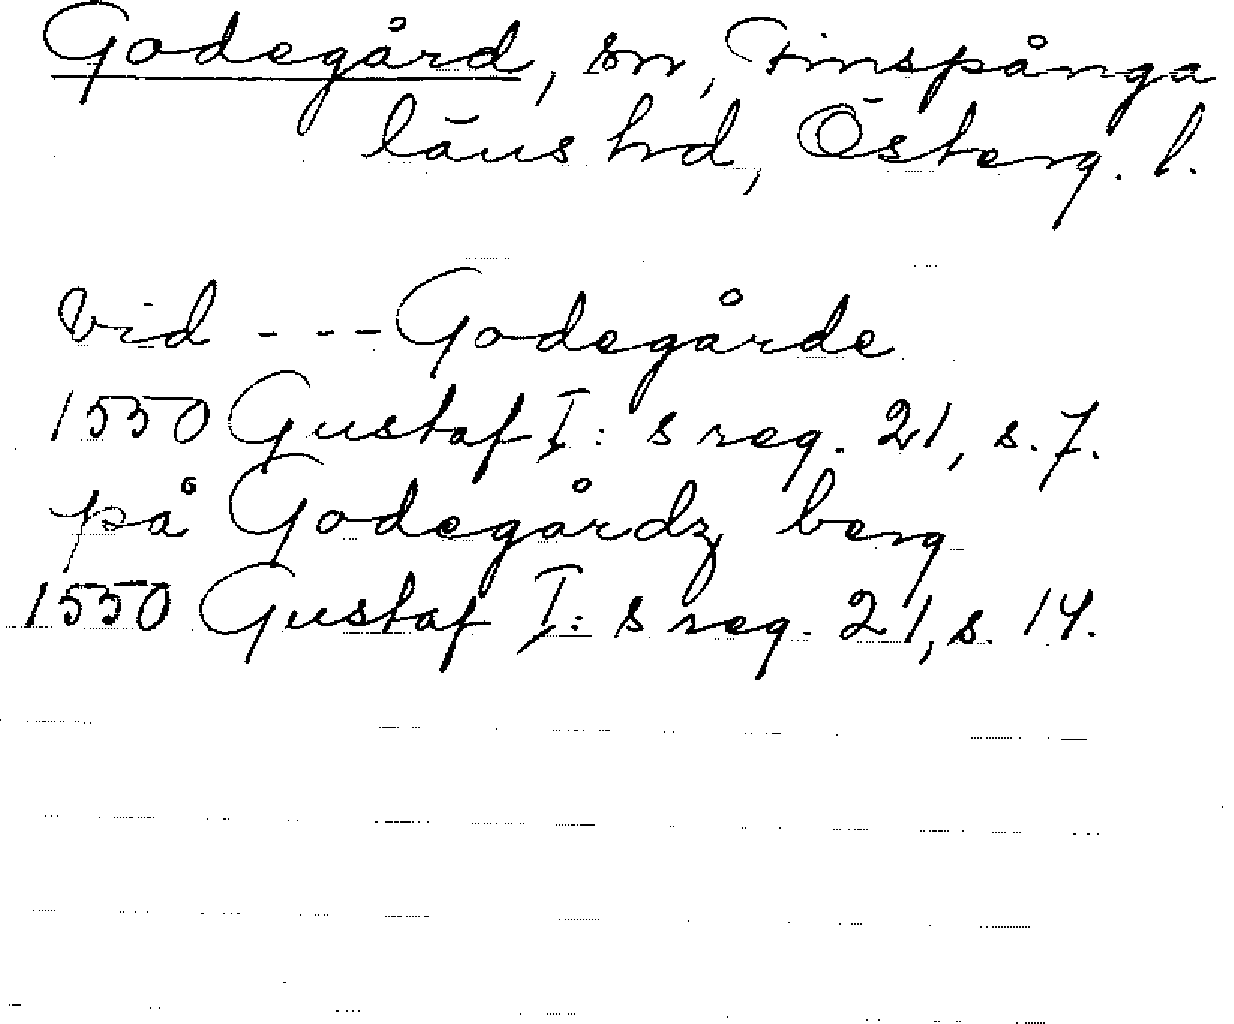 Godegård, sn, Finspånga
läns hd, Österg. l.
vid - - - Godegårde
1550 Gustaf I:s reg. 21, s. 7.
på Godegårdz berg
1550 Gustaf I:s reg. 21, s. 14.